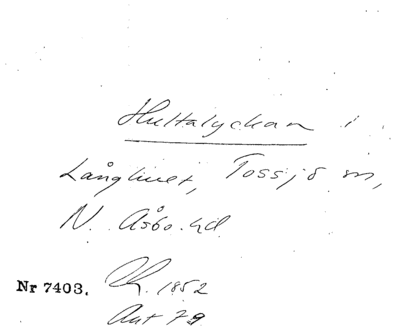 Hultalyckan i
Långhult, Tossjö sn,
N. Åsbo hd
Nr 7403. Rh. 1852
Akt 79